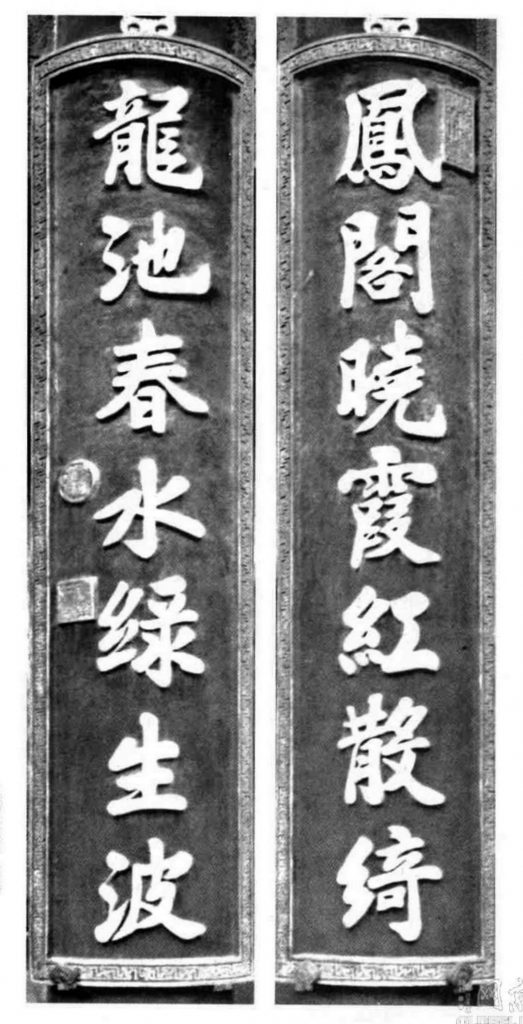 鳳閣曉霞紅散綺
龍池春水綠生波